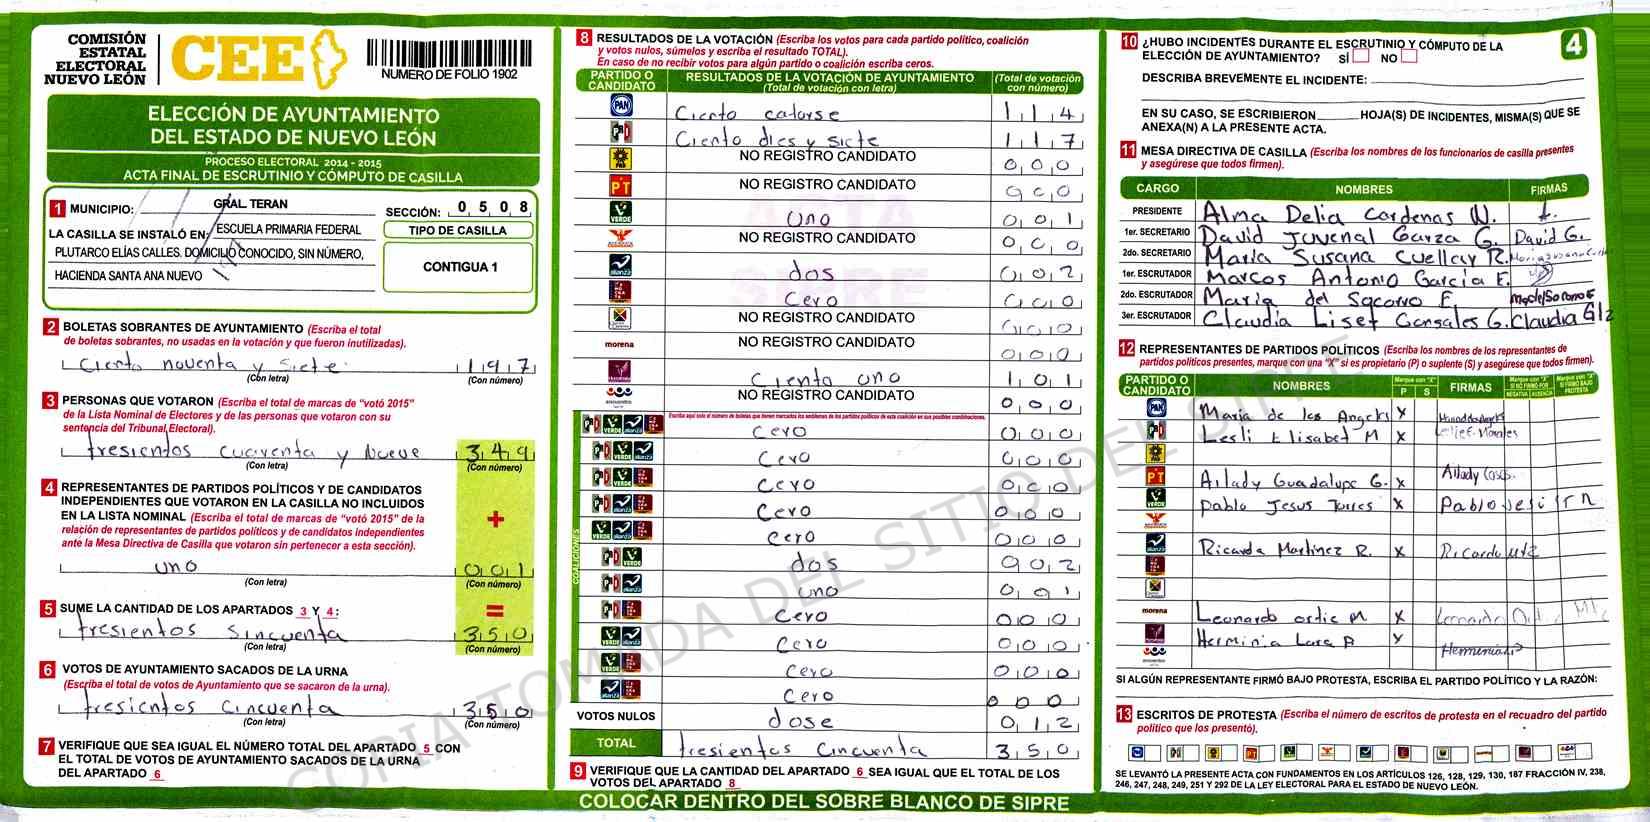 COMISIÓN
ESTATAL
ELECTORAL
NUEVO LEÓN
CEE
NUMERO DE FOLIO 1902
ELECCIÓN DE AYUNTAMIENTO
DEL ESTADO DE NUEVO LEÓN
PROCESO ELECTORAL 2014 - 2015
ACTA FINAL DE ESCRUTINIO Y CÓMPUTO DE CASILLA
1 MUNICIPIO: GRAL. TERAN
SECCIÓN: 0508
LA CASILLA SE INSTALÓ EN: ESCUELA PRIMARIA FEDERAL
PLUTARCO ELÍAS CALLES. DOMICILIO CONOCIDO, SIN NÚMERO,
HACIENDA SANTA ANA NUEVO
TIPO DE CASILLA
CONTIGUA 1
2 BOLETAS SOBRANTES DE AYUNTAMIENTO (Escriba el total
de boletas sobrantes, no usadas en la votación y que fueron inutilizadas).
Ciento noventa y siete 197
(Con letra) (Con número)
3 PERSONAS QUE VOTARON (Escriba el total de marcas de "votó 2015"
de la Lista Nominal de Electores y de las personas que votaron con su
sentencia del Tribunal Electoral).
tresientos cuarenta y Nueve 349
(Con letra) (Con número)
4 REPRESENTANTES DE PARTIDOS POLÍTICOS Y DE CANDIDATOS
INDEPENDIENTES QUE VOTARON EN LA CASILLA NO INCLUIDOS
EN LA LISTA NOMINAL (Escriba el total de marcas de "votó 2015" de la
relación de representantes de partidos políticos y de candidatos independientes
ante la Mesa Directiva de Casilla que votaron sin pertenecer a esta sección).
+
uno 001
(Con letra) (Con número)
5 SUME LA CANTIDAD DE LOS APARTADOS 3 Y 4: =
tresientos Sincuenta 350
(Con letra) (Con número)
6 VOTOS DE AYUNTAMIENTO SACADOS DE LA URNA
(Escriba el total de votos de Ayuntamiento que se sacaron de la urna).
tresientos Cincuenta 350
(Con letra) (Con número)
7 VERIFIQUE QUE SEA IGUAL EL NÚMERO TOTAL DEL APARTADO 5 CON
EL TOTAL DE VOTOS DE AYUNTAMIENTO SACADOS DE LA URNA
DEL APARTADO 6
8 RESULTADOS DE LA VOTACIÓN (Escriba los votos para cada partido político, coalición
y votos nulos, súmelos y escriba el resultado TOTAL).
En caso de no recibir votos para algún partido o coalición escriba ceros.
PARTIDO O CANDIDATO
RESULTADOS DE LA VOTACIÓN DE AYUNTAMIENTO
(Total de votación con letra)
(Total de votación con número)
PAN Ciento catorse 114
PRD Ciento dies y siete 117
PRD NO REGISTRO CANDIDATO 000
PT NO REGISTRO CANDIDATO 000
VERDE uno 001
NO REGISTRO CANDIDATO 000
alianza dos 002
Cero 000
NO REGISTRO CANDIDATO 000
morena NO REGISTRO CANDIDATO 000
Ciento uno 101
encuentro NO REGISTRO CANDIDATO 000
COALICIONES
Escriba aquí solo el número de boletas que tienen marcados los emblemas de los partidos políticos de esta coalición en sus posibles combinaciones.
Cero 000
Cero 000
Cero 000
Cero 000
Cero 000
dos 002
uno 001
Cero 000
Cero 000
Cero 000
Cero 000
VOTOS NULOS dose 012
TOTAL tresientos Cincuenta 350
9 VERIFIQUE QUE LA CANTIDAD DEL APARTADO 6 SEA IGUAL QUE EL TOTAL DE LOS
VOTOS DEL APARTADO 8
COLOCAR DENTRO DEL SOBRE BLANCO DE SIPRE
10 ¿HUBO INCIDENTES DURANTE EL ESCRUTINIO Y CÓMPUTO DE LA
ELECCIÓN DE AYUNTAMIENTO? SÍ NO
4
DESCRIBA BREVEMENTE EL INCIDENTE:
EN SU CASO, SE ESCRIBIERON HOJA(S) DE INCIDENTES, MISMA(S) QUE SE
ANEXA(N) A LA PRESENTE ACTA.
11 MESA DIRECTIVA DE CASILLA (Escriba los nombres de los funcionarios de casilla presentes
y asegúrese que todos firmen).
CARGO NOMBRES FIRMAS
PRESIDENTE Alma Delia Cardenas N.
1er. SECRETARIO David Juvenal Garza G. David G.
2do. SECRETARIO Maria Susana Cuellar R.
1er. ESCRUTADOR Marcos Antonio Garcia E.
2do. ESCRUTADOR Maria del Socorro F.
3er. ESCRUTADOR Claudia Liset Gonsales G. Claudia Glz
12 REPRESENTANTES DE PARTIDOS POLÍTICOS (Escriba los nombres de los representantes de
partidos políticos presentes, marque con una "X" si es propietario (P) o suplente (S) y asegúrese que todos firmen).
PARTIDO O CANDIDATO NOMBRES
Marque con "X"
P S
FIRMAS
Marque con "X" SI NO FIRMÓ POR
NEGATIVA AUSENCIA
Marque con "X" SI FIRMÓ BAJO PROTESTA
PAN Maria de los Angeles X
Lesli Elisabet M X
PT Aillady Guadalupe G. X
VERDE Pablo Jesus Torres X
alianza Ricarda Martinez R. X
morena Leonardo ortiz M. X
Herminia Lara P X
SI ALGÚN REPRESENTANTE FIRMÓ BAJO PROTESTA, ESCRIBA EL PARTIDO POLÍTICO Y LA RAZÓN:
13 ESCRITOS DE PROTESTA (Escriba el número de escritos de protesta en el recuadro del partido
político que los presentó).
SE LEVANTÓ LA PRESENTE ACTA CON FUNDAMENTOS EN LOS ARTÍCULOS 126, 128, 129, 130, 187 FRACCIÓN IV, 238,
246, 247, 248, 249, 251 Y 292 DE LA LEY ELECTORAL PARA EL ESTADO DE NUEVO LEÓN.
ACTA
SIPRE
COPIA TOMADA DEL SITIO DEL SIPRE